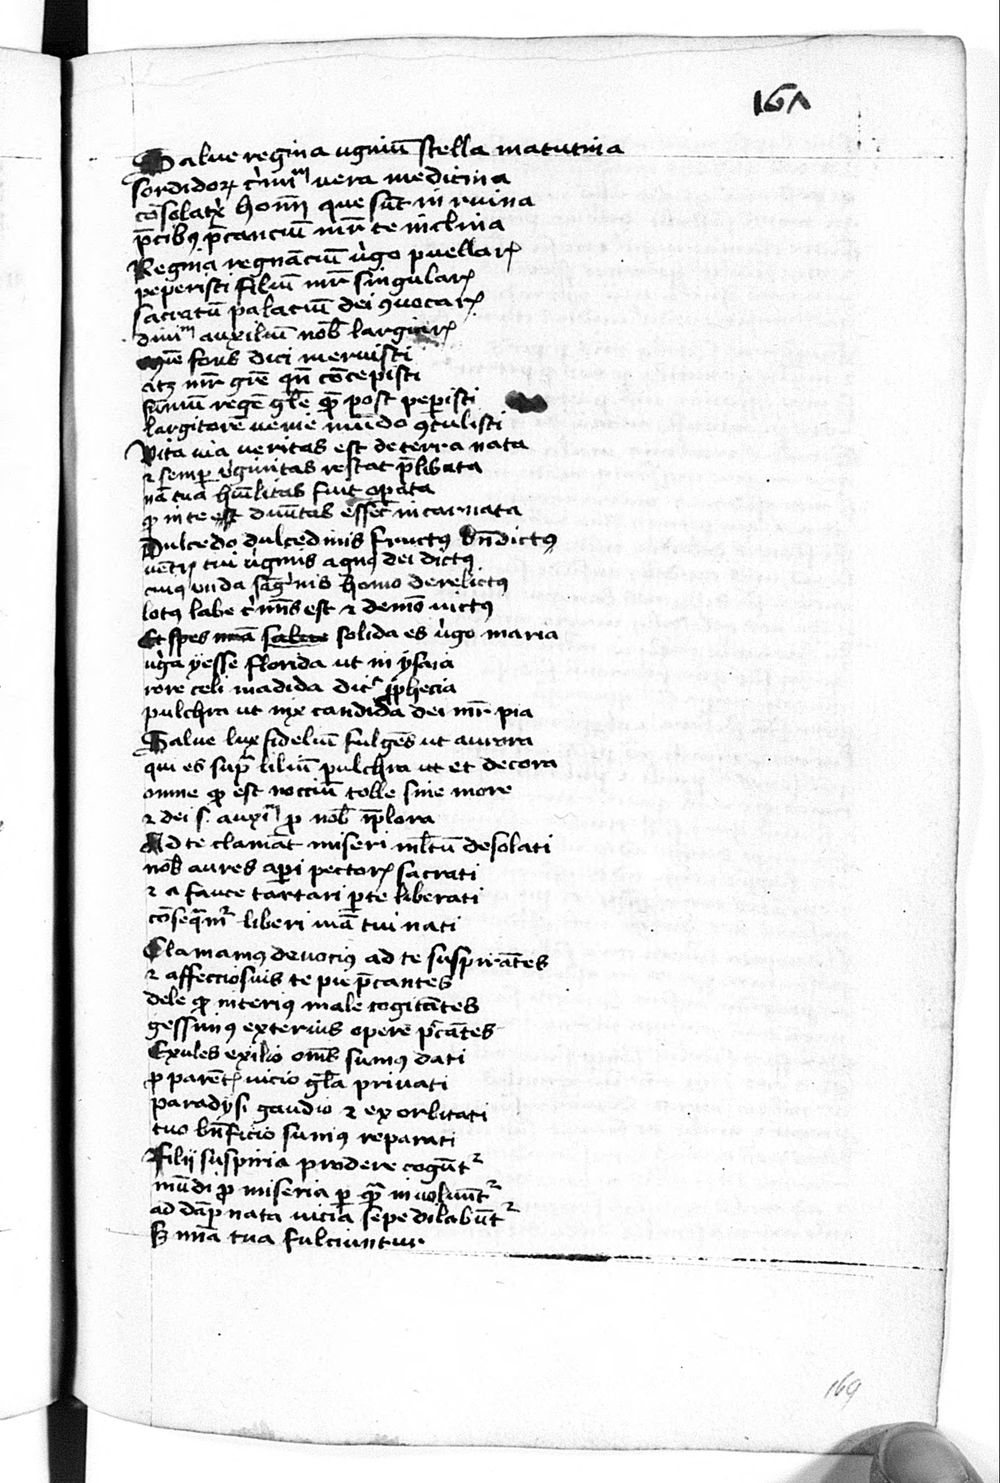 167
Salve regina vgniū stella matutina
sordidoꝝ cͥmīm vera medicina
cōsolatͥx homī que sūt in ruina
p̄cibꝰ p̄canciū mr̄ te inclina
Regina regnāciū vͥgo puellarꝭ
peperisti filiū mr̄ singularꝭ
sacratū palaciū dei ꝯvocarꝭ
auxiliū nob̄ largirꝭ
fons dici meruisti
atꝫ mr̄ grē qn̄ cōcepisti
sūmū regē gl̄e post peꝑisti
largitorē venie mūdo ꝯtulisti
Vita via veritas est de terra nata
⁊ semꝑ vͥginitas restat p̄libata
nā tua hūilitas fuit oꝑata
ꝙ in te diuītas incarnata
Dulcedo dulcedinis fructꝰ bn̄dictꝰ
vētrꝭ tui vͥginis agnꝰ dei dictꝰ
cuiꝰ vnda sāgͥnis homo derelictꝰ
lotꝰ labe cͥmīs est ⁊ demō victꝰ
Et spes solida es vͥgo maria
vͥga yesse florida ut in ysaia
rore celi madida dicͭ ꝓphecia
pulchra ut nix candida dei mr̄ pia
Salve lux fideliū fulgēs ut aurora
qui es supͣ liliū pulchra ut et decora
omne ꝙ est nociuū tolle sine more
⁊ dei s. auxim̄ ꝓ nob̄ īplora
Ad te clamāt miseri ml̄tū desolati
nob̄ aures aꝑi pectorꝭ sacrati
⁊ a fauce tartari ꝑ te liberati
cōseqͣmͬ liberi tui nati
Clamamꝰ deuociꝰ ad te suspirātes
⁊ affecciosiuis te pie p̄cantes
dele ꝙ interiꝰ male cogitātes
gessimꝰ exterius opere pͨcātes
Exules exilio om̄s sumꝰ dati
ꝓ parētꝭ vicio gr̄a privati
paradysi gaudio ⁊ ex orbitati
tuo bn̄ficio sumꝰ reparati
Filij suspiria prodere cogūtͬ
mūdi ꝓ miseria ꝑ quā involuūtͬ
ad dāpnata vicia sepe dilabūtͬ
s; tua fulciuntur
169